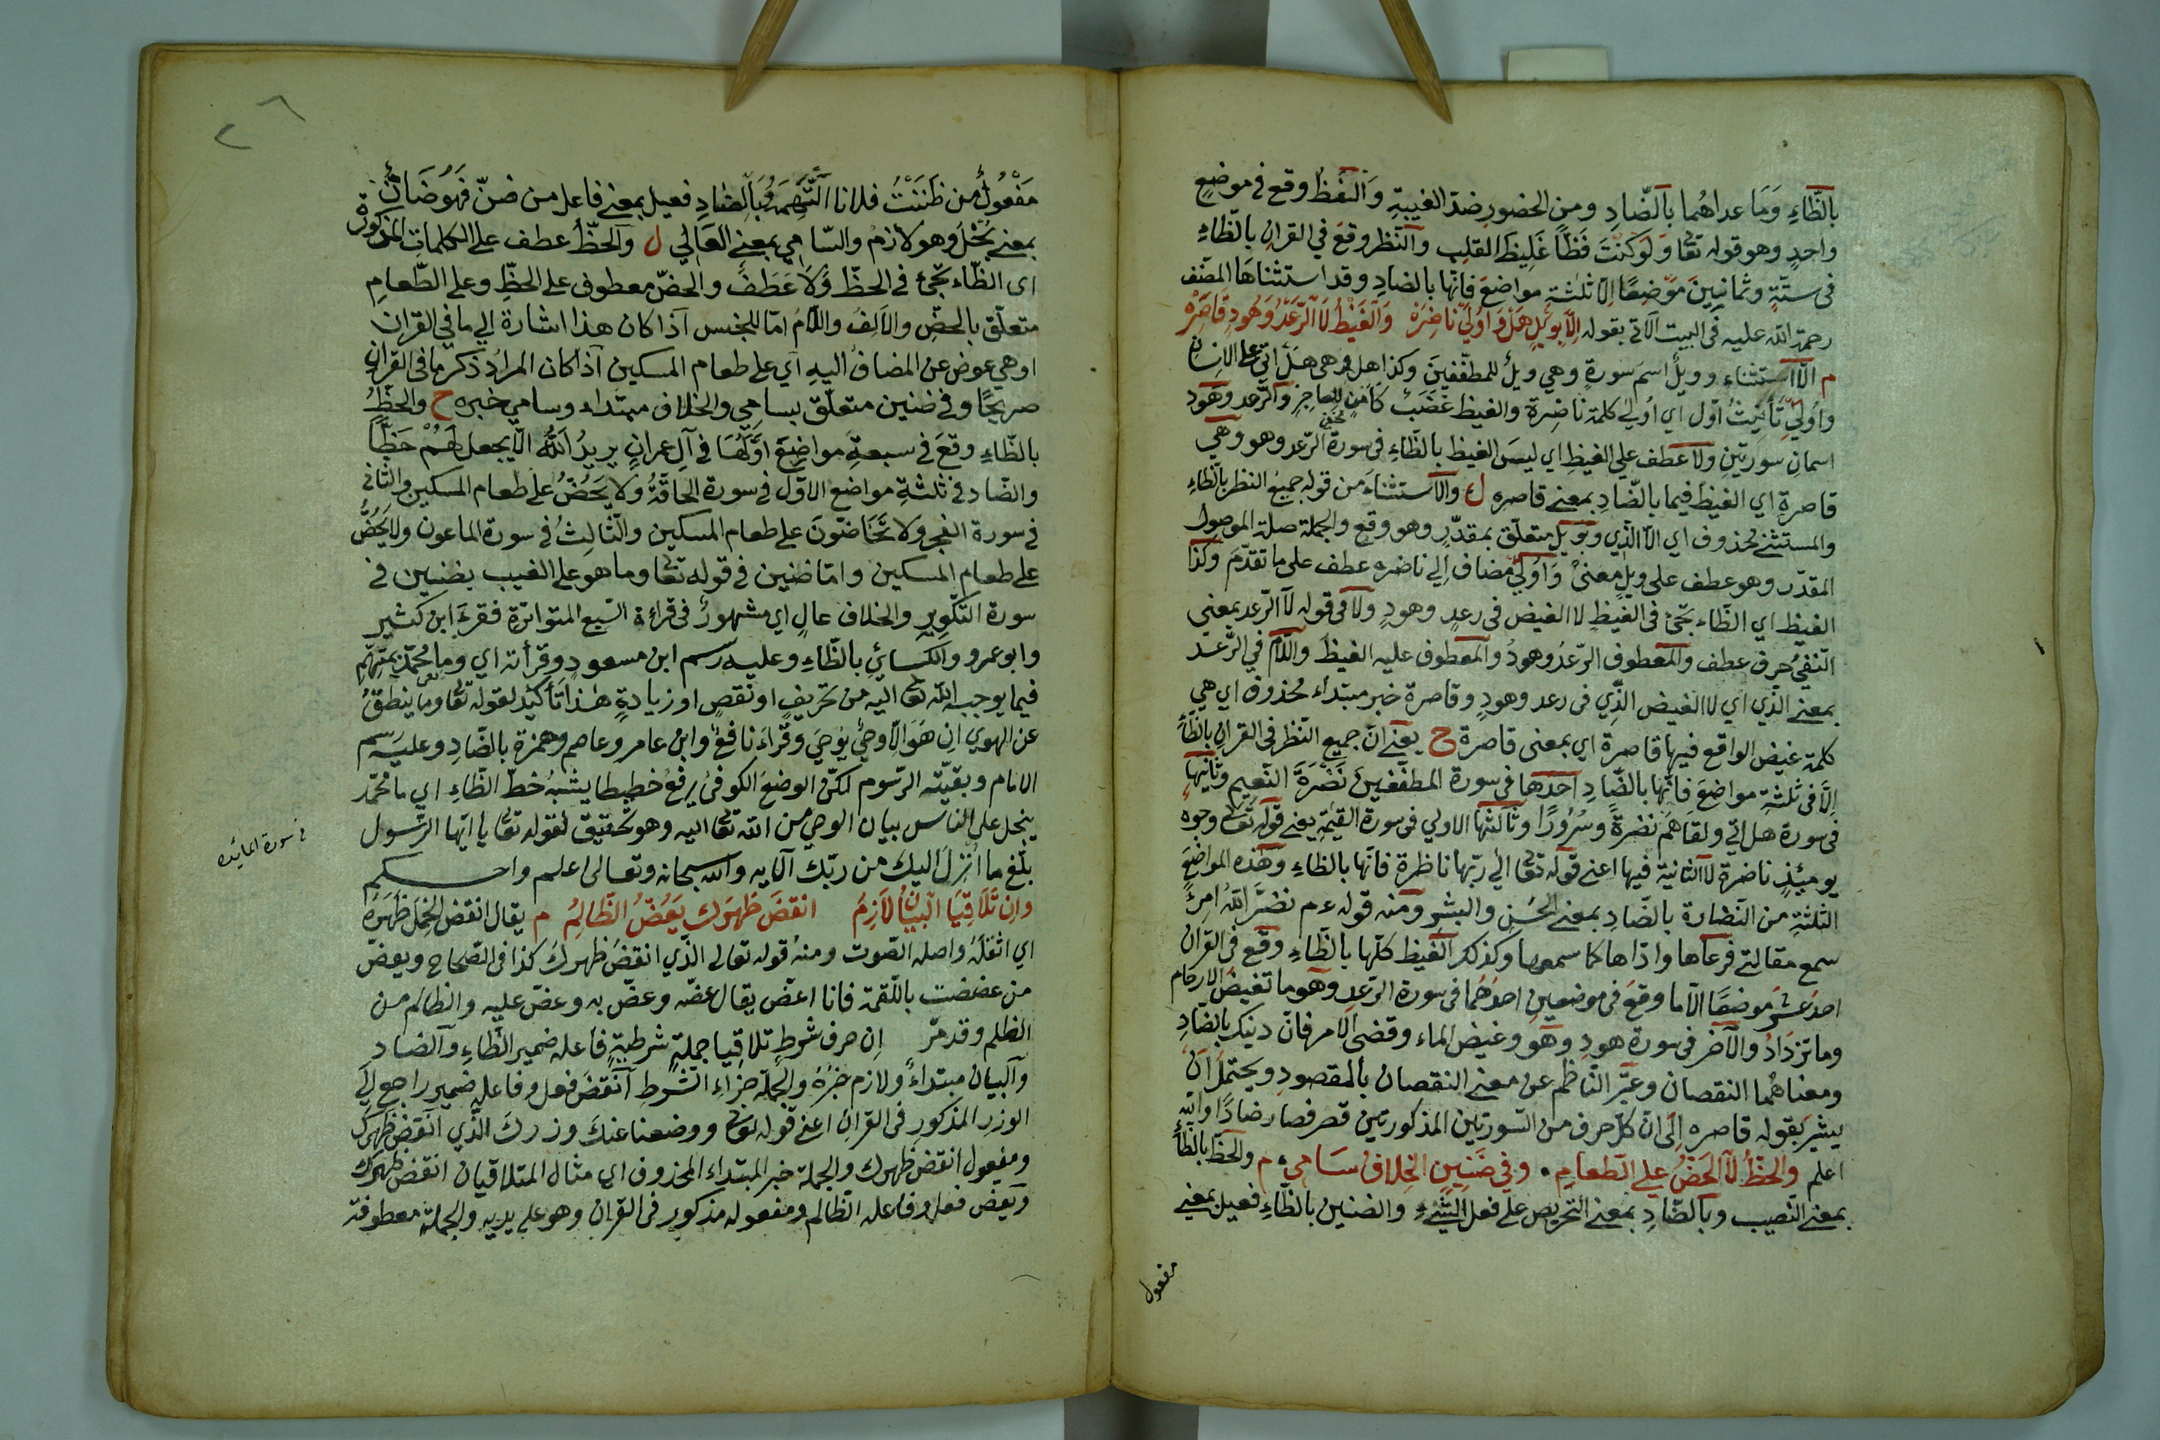 بالظّاءِ وَمَا عداهُما بالضّادِ ومن الحضورِ ضدّ الغيبةِ وَالْفَظُّ وقع فى موضعٍ
واحدٍ وهو قوله تعا وَلَوْ كنْتَ فَظًّا غَلِيظَ القلبِ والنّظر وقعَ في القرانِ بالظّاءِ
فى ستّةٍ وثمانينَ مَوْضِعًا اِلّا ثلثة مواضعَ فانّها بالضادِ وقد استثناهَا المصنّف
رحمة الله عليه فى البيت الآتى بقوله اِلّا بِوَيْلٍ هَلْ وَاُولٰى نَاضِرَهْ وَالْغَيْظُ لَا الرَّعْدُ وَهُودٍ قَاصَرَهْ
م الّا استثناء وويلٌ اسم سورةٍ وهي ويلٌ للمطفّفينَ وكذا هل وهى هَلْ اتى على الانسان
واُولٰى تأنيثُ اوّل اي اُولىٰ كلمة ناضِرة والغيظ غَضَبٌ كَامَنٌ للعاجزِ والرّعد وهود
اسمانِ سورتينِ ولا عطف على الغيظِ اي ليسَ الغيظ بالظّاءِ فى سورة الرّعد وهو وهي
قاصرةٍ اي الغيظ فيما بالضّادِ بمعنى قاصره ل والاستثناءَ من قوله جميعُ النظر بالظّاءِ
والمستثنىٰ محذوف اي الّا الّذي وبويل متعلّق بمقدّرٍ وهو وقع والجملة صلة الموصول
المقدّر وهو عطف على ويلٍ معنىً وَاُولىٰ مضاف اِلي ناضره عطف على ما تقدّمَ وكذا
الغيظ اي الظّاء بجئ فى الغيظِ لا الغيض فى رعدٍ وهودٍ ولا فى قوله لا الرّعد بمعني
النّفىُ حرف عطف والمعطوف الرّعدُ وهودُ والمعطوف عليه الغيظ واللّام في الرّعد
بمعنے الّذي اي لا الغيض الّذي فى رعد وهودٍ وقاصرة خبر مبتداء محذوف اي هي
كلمة غيض الواقع فيها قاصرة اي بمعنى قاصرة ح يعنے انّ جميع النّظر فى القرانِ بالظّاءِ
اِلّا فى ثلثةِ مواضعَ فانّها بالضّادِ احدها فى سورة المطفّفينَ نَضْرَةَ النّعيم وثانيها
فى سورة هل اتي ولقاهُم نضرةً وسُرُورًا وثالثها الاولي فى سورة القيٰمةِ يعنے قوله تعا وجوه
يومئذٍ ناضرة لا الثانية فيها اعنے قوله تعا الي ربّها ناظرة فانّها بالظاءِ وهذه المواضعُ
الثلثةِ من النّضارة بالضّادِ بمعنے الحُسنِ والبشرِ ومنه قوله عم نضّرَ اللهُ امرءً
سمع مقالتے فرعاها وادّاها كما سمعها وكذلك الغيظ كلّها بالظّاءِ وقع فى القران
احدَ عشرَ موضعًا الّا ما وقعَ فى موضعينِ احدُهُما فى سورة الرّعدِ وهو ما تغيضُ الارحام
وما تزدَادُ والآخر فى سورة هودٍ وهو وغيض الماء وقضى الامر فانّ ذينك بالضادِ
ومعناهُما النقصان وعبّرَ النّاظم عن معنے النقصان بالمقصودِ ويحتملُ انّ
يشيرَ بقوله قاصره اِلى انّ كلّ حرف من السّورتين المذكورتينِ قصر فصار ضادًا والله
اعلم والحظُّ لا الحَضُّ علي الطّعامِ وفي ضَنِينِ الخِلافُ سَامي م والحظّ بالظّاءِ
بمعنے النّصيب وبالضّادِ بمعنے التّحريض على فعل الشّئِ والضنين بالظّاءِ فعيل بمعنے
مفعول
مَفْعُولٌ من ظَنَنْتُ فلانا اتّهمتُهُ وبالضادِ فعيل بمعنے فاعل من ضنّ فَهُوَ ضَانٌّ
بمعنے بَخِلَ وهو لازمُ والسّامي بمعنے العالي ل والحظُّ عطف علي الكلماتِ المذكورة
اى الظّاء بجئ فى الحظّ وَلَا عَطَفُ والحضّ معطوف على الحظِّ وعلي الطّعامِ
متعلّق بالحضِّ والالف واللّامُ امّا للجنس اذا كان هذا اشارة الي ما في القران
او هي عوض عن المضاف اليهِ اي على طعام المسكين اذا كان المرادُ ذكر ما فى القران
صريحًا وفى ضنين متعلّق بسامي والخلاف مبتداء وسامي خبره ح والحظُّ
بالظّاءِ وقعَ فى سبعةِ مواضعَ اوّلها فى آل عمرانَ يريدُ اللهُ الّا يجعل لَهُمْ حَظًّا
والضّاد فى ثلثةِ مواضع الاوّل فى سورة الحاقّةُ ولا يَحُضُّ على طعام المسكين والثّانى
فى سورة الفجر ولا تَحَاضّونَ على طعام المسكين والثّالثُ فى سورة الماعون ولا يَحُضُّ
على طعام المسكين وامّا ضنين فى قوله تعا وما هو على الغيب بضنين فى
سورة التّكويرِ والخلاف عالٍ اي مشهورٌ فى قراءة السّبع المتواترة فقرءَ ابن كثير
وابو عمرو والكسائي بالظّاءِ وعليه رسم ابن مسعودٍ وقرأته اي وما محمّدٌ بمتّهمٍ
فيما يوحِيه الله تعا اليه من تحريفٍ او نقصٍ او زيادةٍ هذا تأكيد لقوله تعا وما ينطقُ
عن الهوي ان هَوَ الّا وحيٌ يوحيَ وقراءَ نافعٌ وابن عامر وعاصم وحمزة بالضّادِ وعليه رسم
الامام وبقيّة الرّسوم لكنّ الوضعَ الكوفىُ يرفعُ خطيطا يشبهُ خطّ الظّاءِ اي ما محمّد
ببخل على الناس ببيان الوحي من الله تعا اليه وهو تحقيق لقوله تعا يا ايّها الرّسول
بلّغ ما اُنزلَ اليك من ربّك الآيه والله سبحانه وتعالى اعلم واحكم
فى سورة المائده
وان تَلَاقَيَا البَيَانُ لَازِمُ انقضَ ظَهرَك يَعَضُّ الظّالِمُ م يقال انقضَ الحِملُ ظهَرَهُ
اي اثقلَهُ واصله الصّوت ومنهُ قوله تعالى الّذي انقضَ ظهرَك كذا فى الصّحاح ويعضّ
من عضضت باللّقمة فانا اعضّ يقال عضّه وعضّ به وعضّ عليه والظالم من
الظلم وقد مرّ اِن حرف شرطٍ تلاقيا جملةٍ شرطيةٍ فاعله ضمير الظّاءِ والضاد
والبيان مبتداءٌ ولازم خبرُهُ والجملة جزاء الشّرط انقضَ فعل وفاعله ضمير راجع اِلي
الوزر المذكور فى القرانِ اعنے قوله تعا ووضعنا عنك وزرك الّذي انقضَ ظهرَك
ومفعول انقض ظهرك والجملة خبر المبتداء المحذوف اي مثال المتلاقيان انقض ظهرك
ويعض فعل وفاعله الظّالم ومفعوله مذكور فى القرانِ وهو على يديه والجملة معطوفة